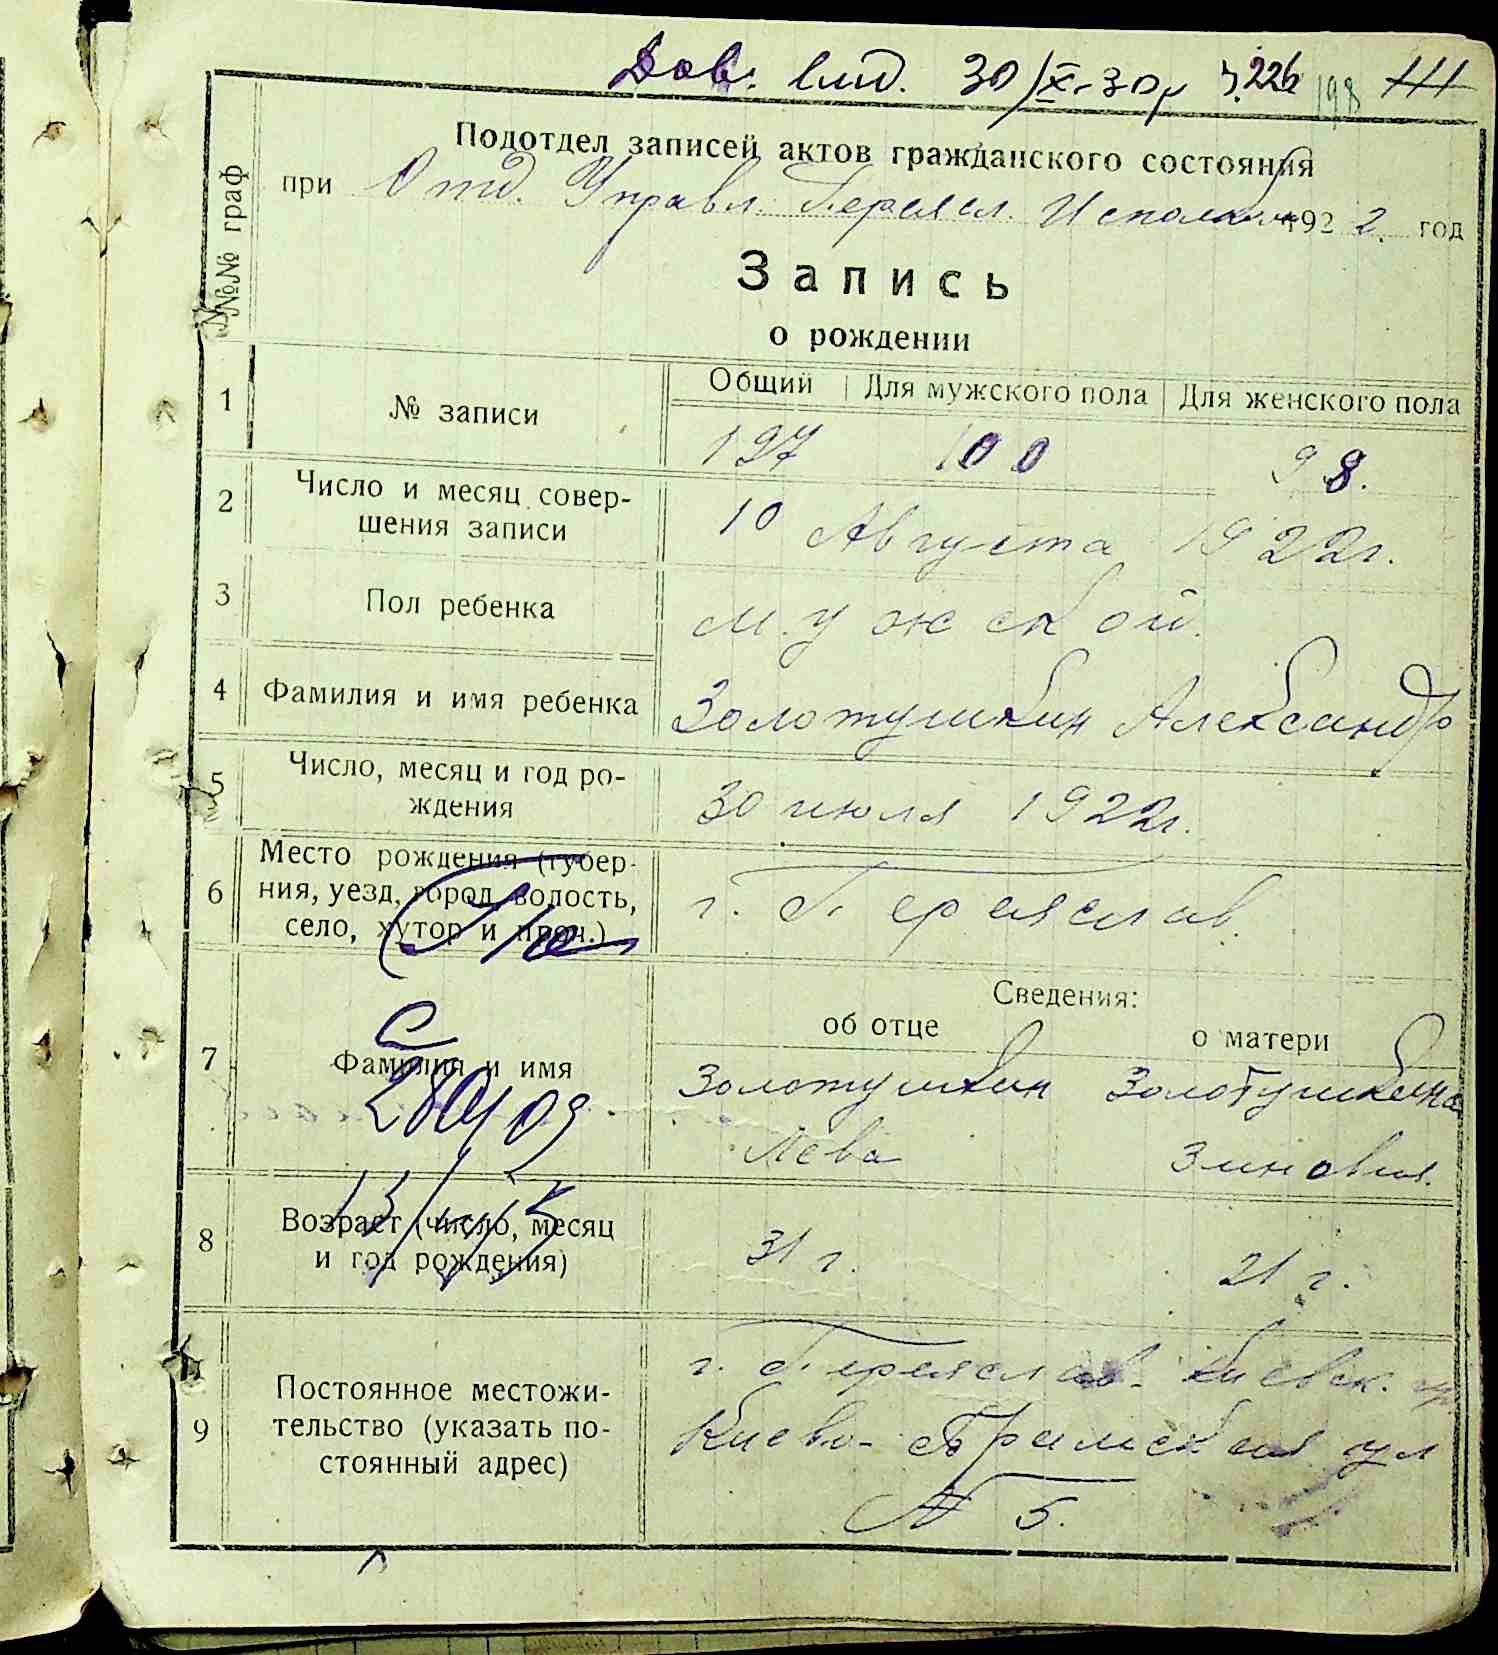 Дов. вид. 30/IX-30р 226 198
Подотдел записей актов гражданского состояния
при Отд. Управл. Переясл. Исполкома 1922. год
№№ граф
Запись
о рождении
1 № записи Общий Для мужского пола Для женского пола
197 100 98.
2 Число и месяц совер-
шения записи 10 Августа 1922г.
3 Пол ребенка мужской.
4 Фамилия и имя ребенка Золотушкин Александр
5 Число, месяц и год ро-
ждения 30 июля 1922г.
6 Место рождения (губер-
ния, уезд, город, волость,
село, хутор и проч.) г. Переяслав.
Сведения:
об отце о матери
7 Фамилия и имя Золотушкин Золотушкина
Лева Зиновия.
8 Возраст (число, месяц
и год рождения) 31 г. 21 г.
9 Постоянное местожи-
тельство (указать по-
стоянный адрес) г. Переяслав. Киевск.
Киево- ул
№ 5.